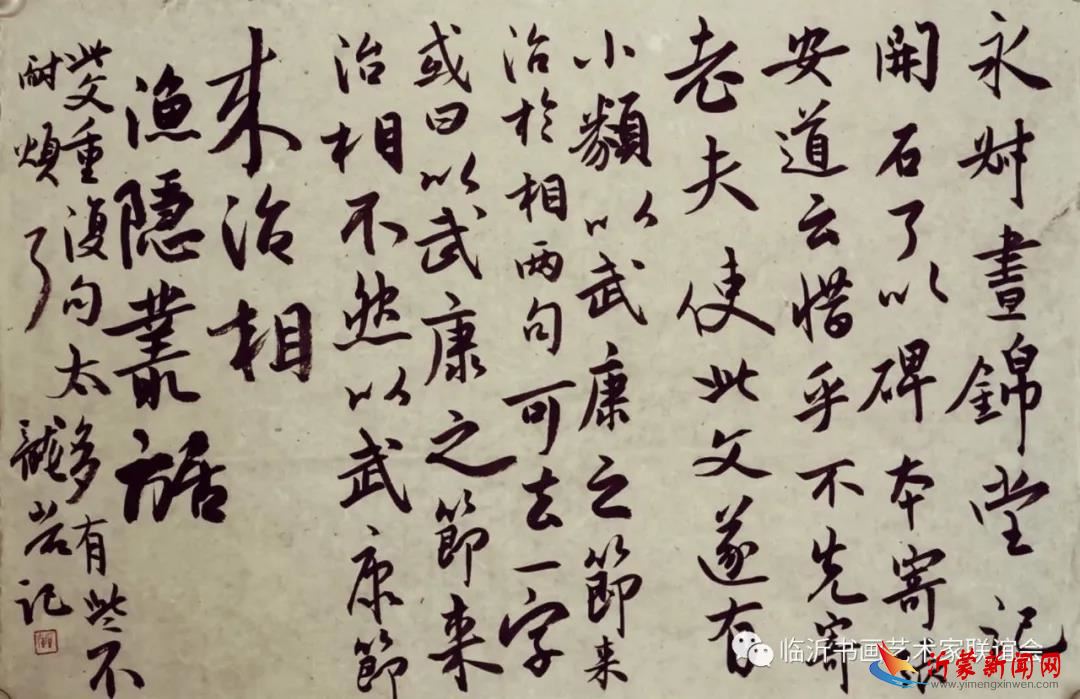 永叔晝錦堂記
開石了以碑本寄
安道云惜乎不先寄
老夫使此文遂有
小纇以武康之節来
治於相两句可去一字
或曰以武康之節来
治相不然以武康節
来治相
漁隱叢話
此文重復句太多有些不
耐煩了 龍岩记
临沂书画艺术家联谊会
沂蒙新闻网
www.yimengxinwen.com